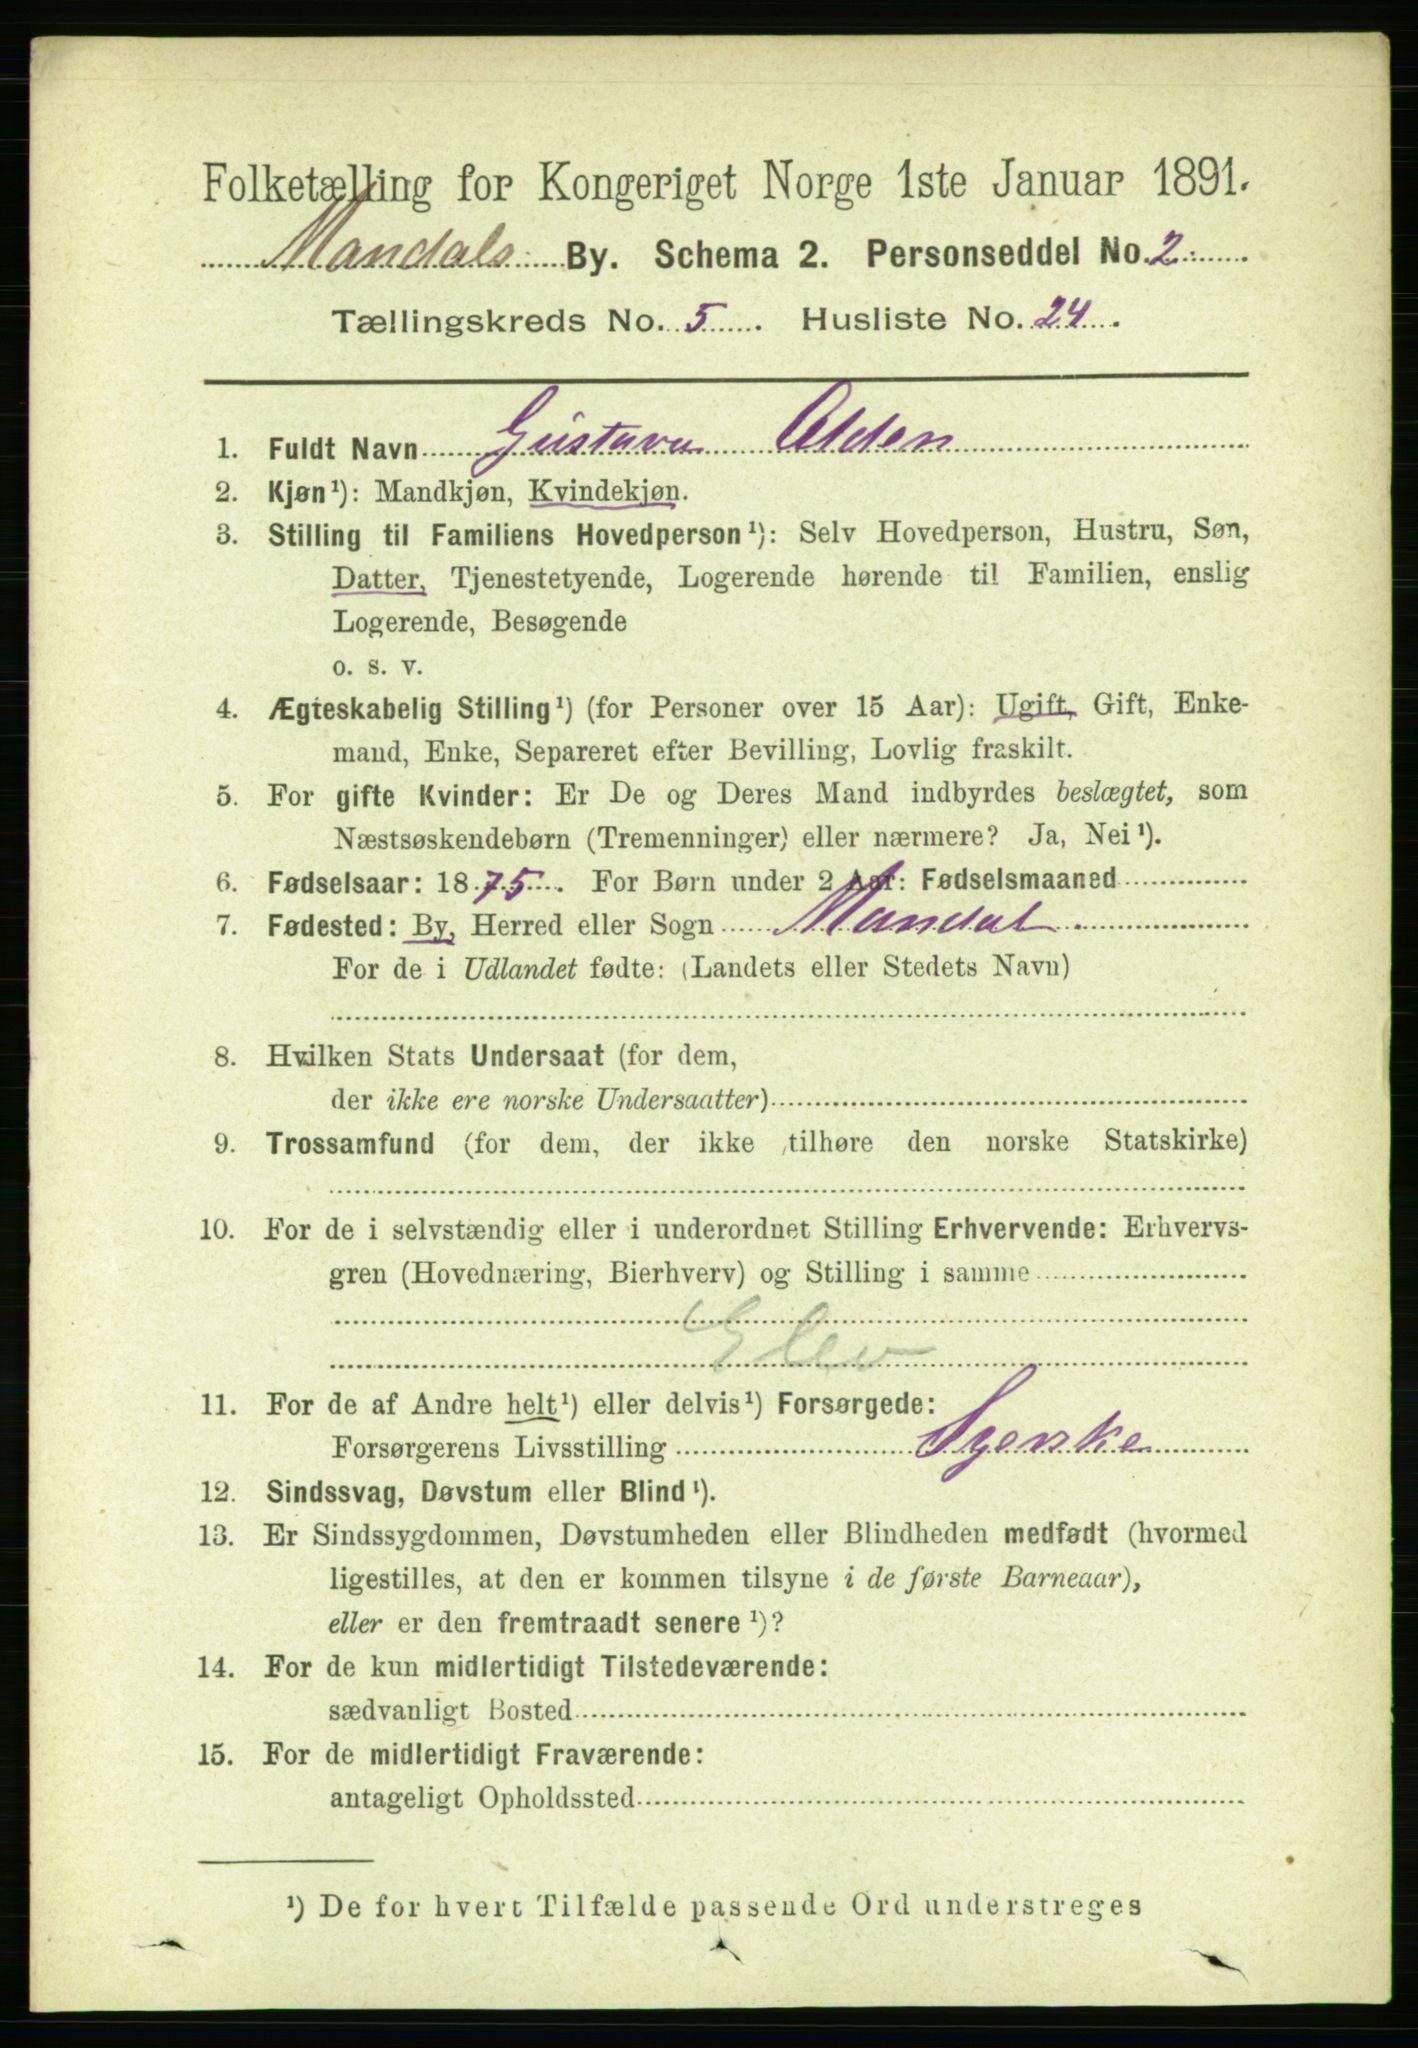 Folketælling for Kongeriget Norge 1ste Januar 1891.
Mandals By. Schema 2. Personseddel No. 2
Tællingskreds No. 5. Husliste No. 24.
1. Fuldt Navn Gustava Olden
2. Kjøn¹): Mandkjøn, Kvindekjøn.
3. Stilling til Familiens Hovedperson¹): Selv Hovedperson, Hustru, Søn,
Datter, Tjenestetyende, Logerende hørende til Familien, enslig
Logerende, Besøgende
o. s. v.
4. Ægteskabelig Stilling¹) (for Personer over 15 Aar): Ugift, Gift, Enke-
mand, Enke, Separeret efter Bevilling, Lovlig fraskilt.
5. For gifte Kvinder: Er De og Deres Mand indbyrdes beslægtet, som
Næstsøskendebørn (Tremenninger) eller nærmere? Ja, Nei¹).
6. Fødselsaar: 1875. For Børn under 2 Aar: Fødselsmaaned
7. Fødested: By, Herred eller Sogn Mandal
For de i Udlandet fødte: (Landets eller Stedets Navn)
8. Hvilken Stats Undersaat (for dem,
der ikke ere norske Undersaatter)
9. Trossamfund (for dem, der ikke tilhøre den norske Statskirke)
10. For de i selvstændig eller i underordnet Stilling Erhvervende: Erhvervs-
gren (Hovednæring, Bierhverv) og Stilling i samme
Elev
11. For de af Andre helt¹) eller delvis¹) Forsørgede:
Forsørgerens Livsstilling
12. Sindssvag, Døvstum eller Blind¹).
13. Er Sindssygdommen, Døvstumheden eller Blindheden medfødt (hvormed
ligestilles, at den er kommen tilsyne i de første Barneaar),
eller er den fremtraadt senere¹)?
14. For de kun midlertidigt Tilstedeværende:
sædvanligt Bosted
15. For de midlertidigt Fraværende:
antageligt Opholdssted
¹) De for hvert Tilfælde passende Ord understreges